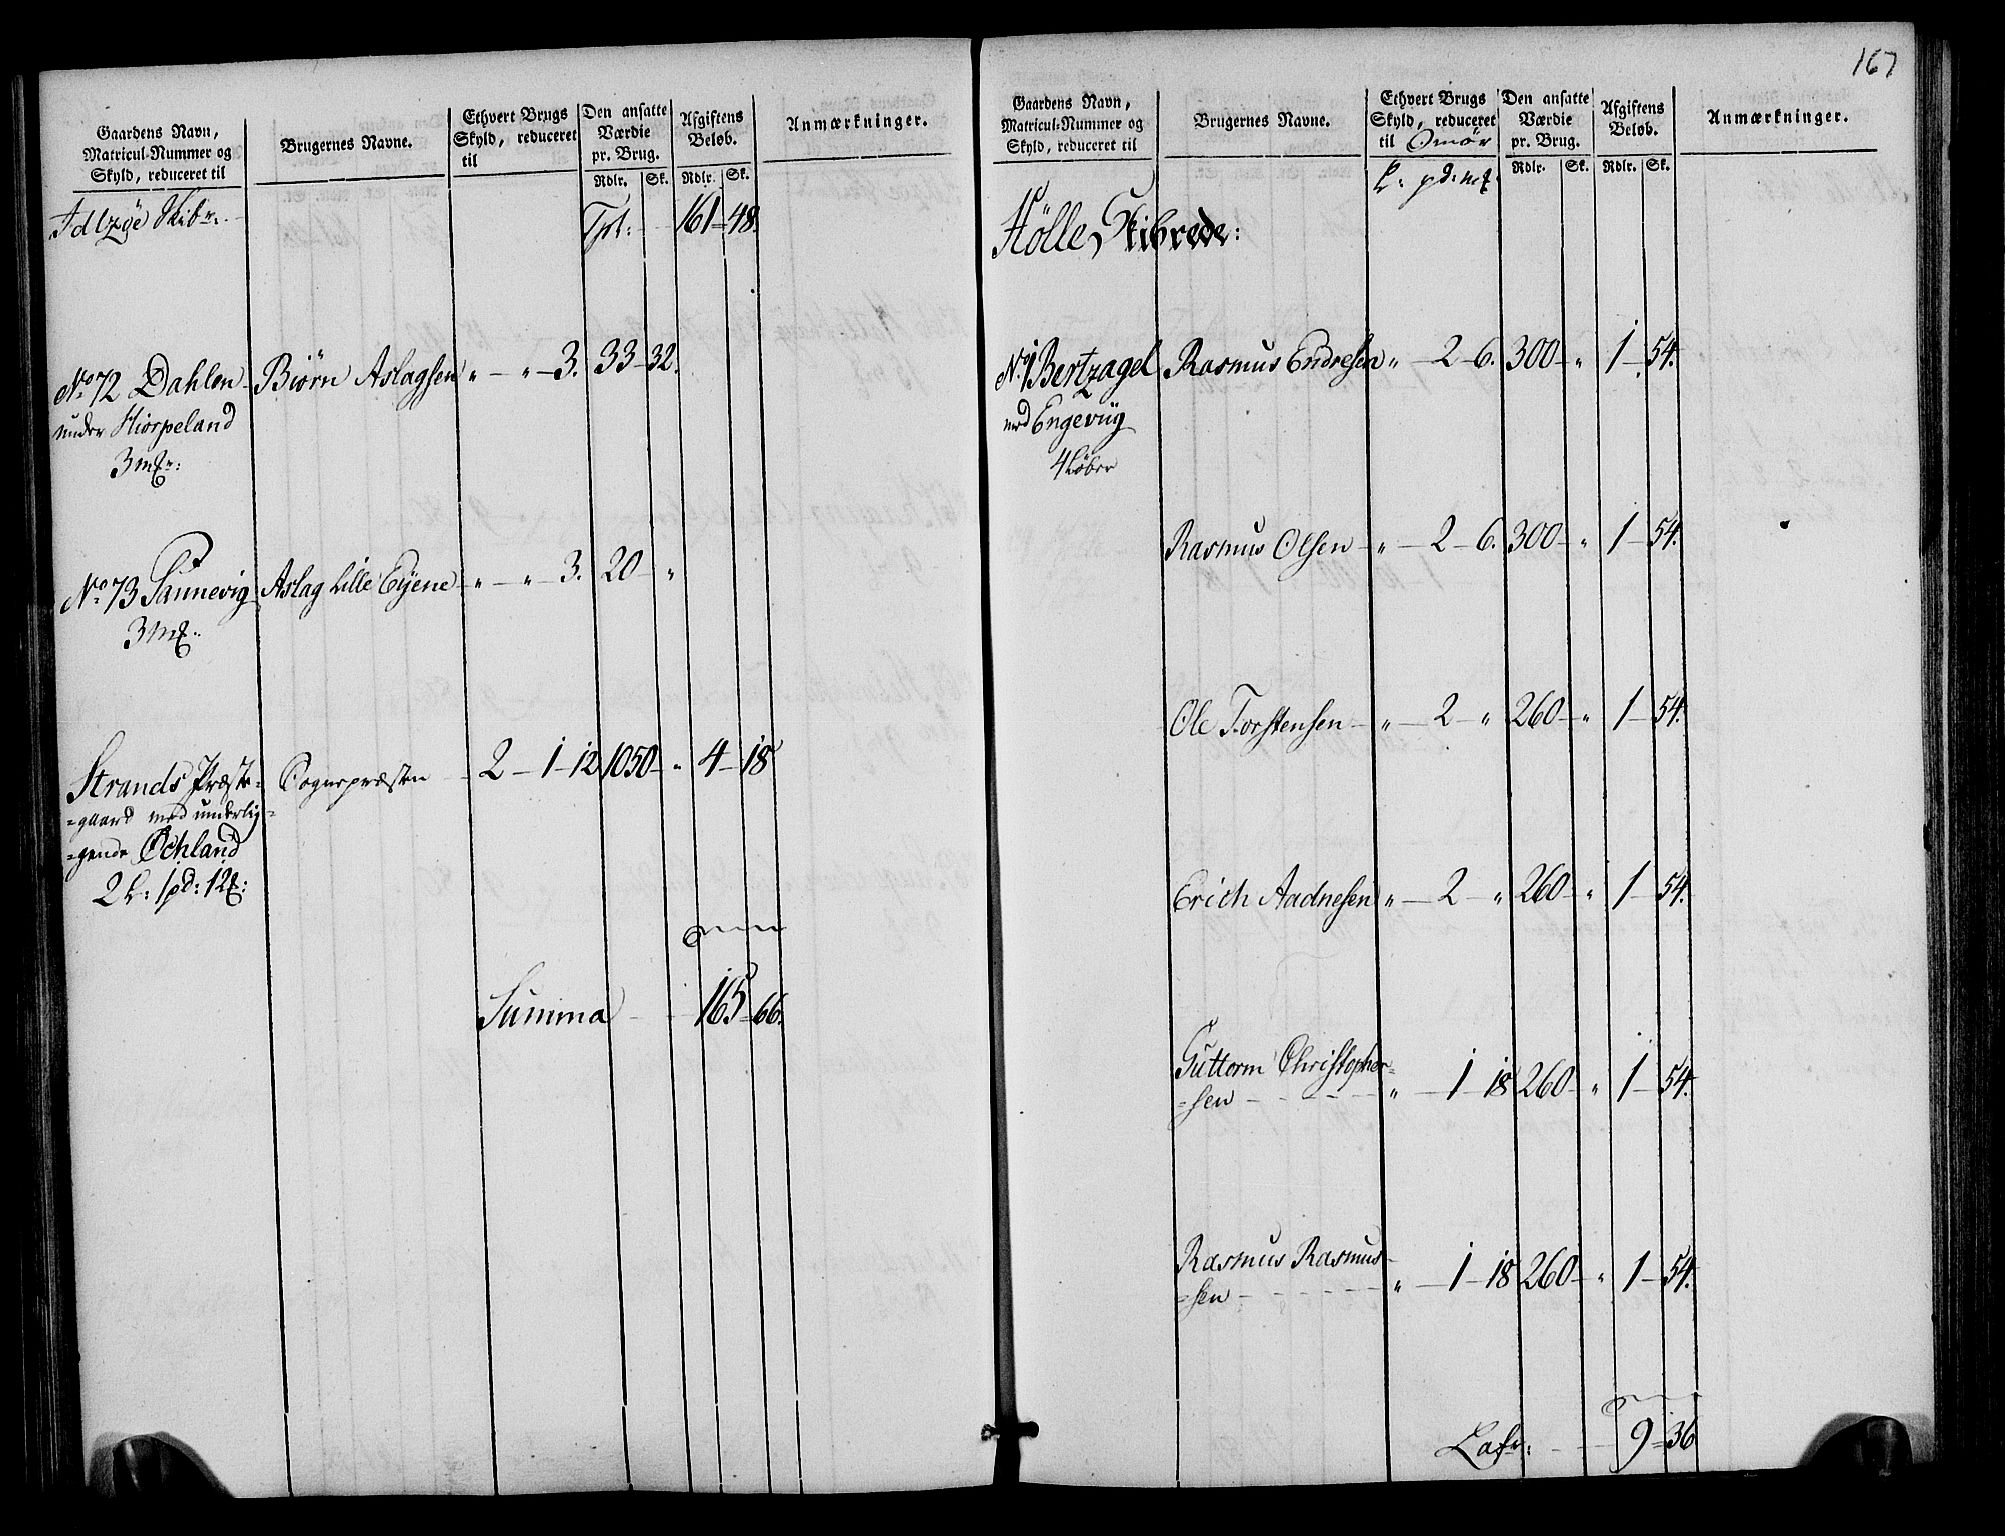 Gaardens Navn,
Matricul-Nummer og
Skyld, reduceret til
Brugernes Navne.
Ethvert Brugs
Skyld, reduceret
til
Den ansatte
Værdie
pr. Brug.
Rdlr. Sk.
Afgiftens
Beløb.
Rdlr. Sk.
Anmærkninger.
Skibr: Tpt: 161 48.
No 72 Dahlen Biørn Aslagsen " " 3. 33 32.
under Hiorpeland
3 mk:
No 73 Tannevig Aslag Lille Eyene " " 3. 20 "
3 mk:
Strands Præste= Sognepræsten 2 1 12 1050 " 4 18
=gaard med underlig=
=gende Ochland
2 L: 1 pd: 12 mk:
Summa 165 66.
167
Gaardens Navn,
Matricul-Nummer og
Skyld, reduceret til
Brugernes Navne.
Ethvert Brugs
Skyld, reduceret
til Smör
L: pd: mk
Den ansatte
Værdie
pr. Brug.
Rdlr. Sk.
Afgiftens
Beløb.
Rdlr. Sk.
Anmærkninger.
Hölle Skibrede:
No 1 Bertzagel Rasmus Endresen " 2 6. 300 " 1 54.
med Engevüg
4 Löber
Rasmus Olsen " 2 6. 300 " 1 54.
Ole Torstensen " 2 " 260 " 1 54.
Erich Aadnesen " 2 " 260 " 1 54.
Guttorm Christopher=
=sen " 1 18 260 " 1 54.
Rasmus Rasmus=
=sen " 1 18 260 " 1 54.
Lats: 9 36